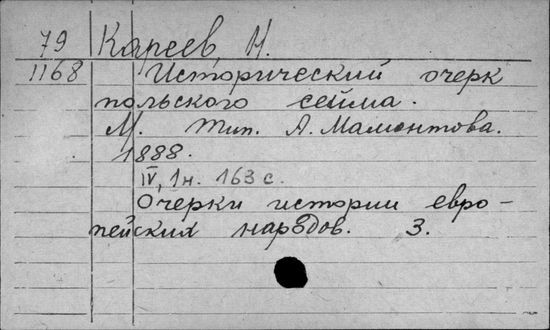 79 Кареев, Н.
1168 Исторический очерк
польского сейма.
М. Тип. А. Мамонтова.
1888.
IV, 1н. 163 с.
Очерки истории евро-
пейских народов. 3.